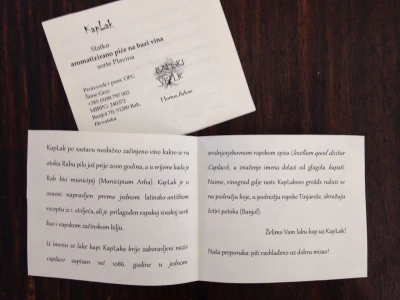 KapLak
Slatko
aromatizirano piće na bazi vina
sorte Plavina
Proizvodi i puni: OPG
Hortus Arbae
Hrvatska
KapLak po sastavu neobično začinjeno vino kakvo se na
otoku Rabu pilo još prije 2000 godina, a u vrijeme kada je
Rab bio municipij (Municipium Arba). KapLak je u
osnovi napravljen prema jednom latinsko-antičkom
receptu iz 1. stoljeća, ali je prilagođen rapskoj vinskoj sorti
kao i rapskom začinskom bilju.
U imenu se lake kapi KapLaka krije zaboravljeni naziv
caplaco zapisan već 1086. godine u jednom
srednjovjekovnom rapskom spisu (locellum quod dicitur
Caplaco), a značenje imena dolazi od glagola kapati.
Naime, vinograd gdje raste KapLakovo grožđe nalazi se
na području koje, a podnožju rapske Tinjaroše, okružuju
četiri potoka (Banjol).
Želimo Vam laku kap uz KapLak!
Naša preporuka: piti rashlađeno uz dobru misao!